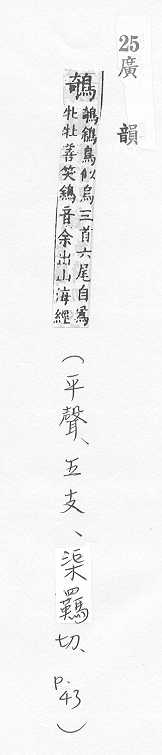 25廣韻
鵸 鵸鵌鳥似烏三首六尾自爲
牝牡善笑鵌音余出山海經
(平聲、五支、渠羈切、p.43)